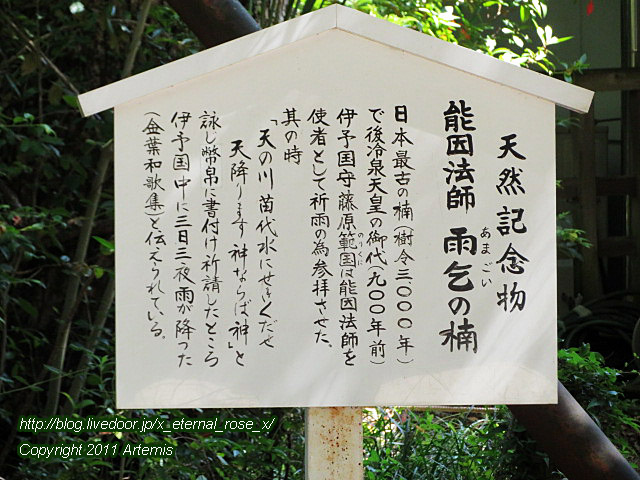 天然記念物
能因法師 雨乞の楠
あまごい
日本最古の楠(樹令三、〇〇〇年)
で後冷泉天皇の御代(九〇〇年前)
伊予国守藤原範国は能因法師を
のりくに
使者として祈雨の為参拝させた。
其の時
「天の川 苗代水にせきくだせ
天降ります 神ならば神」と
詠し幣帛に書付け祈請したところ
伊予国中に三日三夜雨が降った
(金葉和歌集)と伝えられている。
http://blog.livedoor.jp/x_eternal_rose_x/
Copyright 2011 Artemis